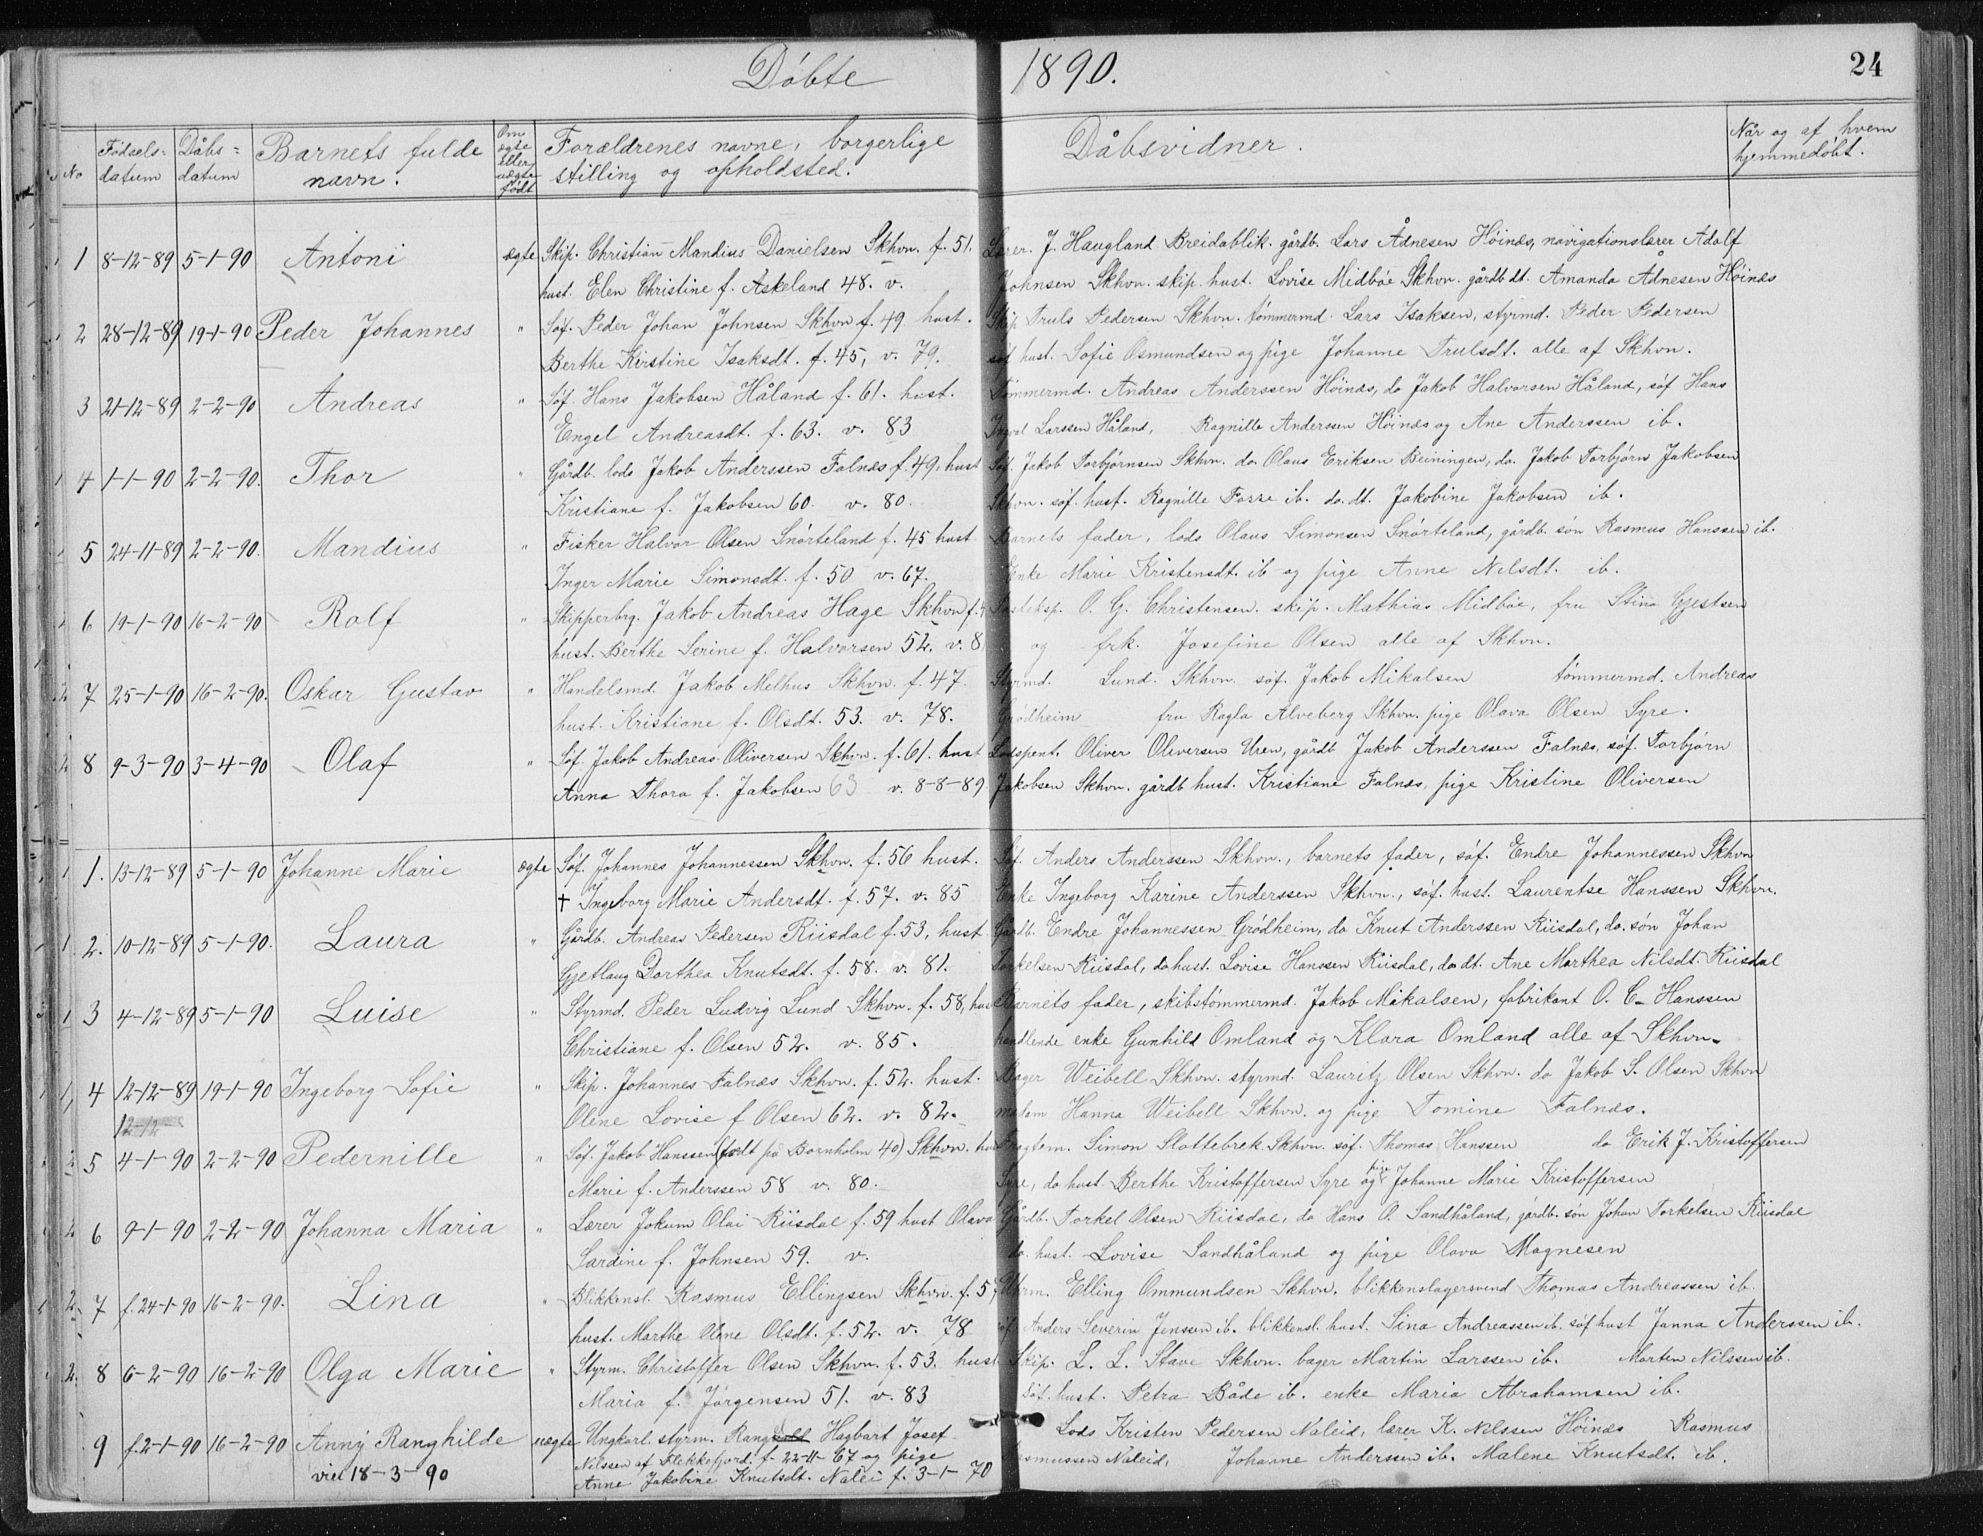 Døbte 1890. 24
No Fødsels-datum Dåbs-datum Barnets fulde navn. Om ægte eller uægte født Forældrenes navne, borgerlige stilling og opholdsted. Dåbsvidner. Når og af hvem hjemmedøbt.
1 8-12-89 5-1-90 Antoni ægte Skip. Christian Mandius Danielsen Skhvn. f. 51. Lærer J. Haugland Breidablik. gårdb. Lars Ådnesen Høinæs, navigationslærer Adolf
hust. Elen Christine f. Askeland 48. v. Johnsen Skhvn. skip. hust. Lovise Midbøe Skhvn. gårdb dt. Amanda Ådnesen Høinæs
2 28-12-89 19-1-90 Peder Johannes " Søf. Peder Johan Johnsen Skhvn f. 49 hust. Skip Truls Pedersen Skhvn. tømmermd. Lars Isaksen, styrmd. Peder Pedersen
Berthe Kirstine Isaksdt. f. 45, v. 79. søf hust. Sofie Osmundsen og pige Johanne Trulsdt. alle af Skhvn.
3 21-12-89 2-2-90 Andreas " Søf. Hans Jakobsen Håland f. 61. hust. Tømmermd. Andreas Anderssen Høinæs, do Jakob Halvorsen Håland, søf Hans
Engel Andreasdt. f. 63. v. 83 Ingval Larssen Håland, Ragnille Anderssen Høinæs og Ane Anderssen ib.
4 1-1-90 2-2-90. Thor " Gårdb. lods Jakob Anderssen Falnæs f. 49, hust Søf. Jakob Torbjørnsen Skhvn. do. Olaus Eriksen Beiningen, do. Jakob Torbjørn Jakobsen
Kristiane f. Jakobsen 60. v. 80. Skhvn. søf. hust. Ragnille Forre ib. do. dt. Jakobine Jakobsen ib.
5 24-11-89 2-2-90. Mandius " Fisker Halvor Olsen Snørteland f. 45 hust Barnets fader, lods Olaus Simonsen Snørteland, gårdb. søn Rasmus Hanssen ib.
Inger Marie Simonsdt. f. 50 v. 67. Enke Marie Kristensdt. ib og pige Anne Nilsdt. ib.
6 19-1-90 16-2-90 Rolf " Skipperbrg. Jakob Andreas Hage Skhvn f. O. G. Christensen. skip. Mathias Midbøe, fru Stina Gjestsen
hust. Berthe Serine f. Halvorsen 52. v. 8 og frk. Josefine Olsen alle af Skhvn.
7 25-1-90 16-2-90. Oskar Gustav " Handelsmd. Jakob Melhus Skhvn. f. 47. Styrmd. Lund. Skhvn. søf. Jakob Mikalsen tømmermd. Andreas
hust. Kristiane f. Olsdt. 53. v. 78. Grødheim fru Ragla Alveberg Skhvn. pige Olava Olsen Syre.
8 9-3-90 3-4-90 Olaf " Søf. Jakob Andreas Oliversen Skhvn. f. 61. hust Lodspent. Oliver Oliversen Uren, gårdb Jakob Anderssen Falnæs, søf. Torbjørn
Anna Thora f. Jakobsen 63 v. 8-8-89 Jakobsen Skhvn. gårdb hust. Kristiane Falnæs, pige Kristine Oliversen
1. 13-12-89 5-1-90 Johanne Marie ægte Søf. Johannes Johannessen Skhvn. f. 56 hust. Søf. Anders Anderssen Skhvn., barnets fader, søf. Endre Johannessen Skhvn
† Ingeborg Marie Andersdt. f. 57. v. 85 Enke Ingeborg Karine Anderssen Skhvn., søf. hust. Laurentse Hanssen Skhvn.
2. 10-12-89 5-1-90. Laura " Gårdb. Andreas Pedersen Riisdal f. 53, hust Gårdb. Endre Johannessen Grødheim, do Knut Anderssen Riisdal, do. søn Johan
Gjetlaug Dorthea Knutsdt. f. 58. v. 81. Torkelsen Riisdal, do hust. Lovise Hanssen Riisdal, do dt. Ane Marthea Nilsdt. Riisdal
3 4-12-89 5-1-90 Luise " Styrmd. Peder Ludvig Lund Skhvn. f. 58, hust Barnets fader, skibstømmermd. Jakob Mikalsen, fabrikant O. C. Hanssen
Christiane f. Olsen 52. v. 85. handlende enke Gunhild Omland og Klara Omland alle af Skhvn.
4 12-12-89 19-1-90 Ingeborg Sofie " Skip. Johannes Falnæs Skhvn. f. 52. hust. Bager Weibell Skhvn. styrmd. Lauritz Olsen Skhvn. do Jakob S. Olsen Skhvn
12-12 Olene Lovise f Olsen 62. v. 82. madam Hanna Weibell Skhvn. og pige Tomine Falnæs.
5 4-1-90 2-2-90 Pedernille " Søf. Jakob Hanssen (født på Bornholm 40) Skhvn. hu Simon Slottebrek Skhvn. søf. Thomas Hanssen do Erik J. Kristoffersen
Marie f. Anderssen 58 v. 80. Syre, do hust. Berthe Kristoffersen Syre og pige Johanne Marie Kristoffersen
6 9-1-90 2-2-90 Johanna Maria " Lærer Jokum Olai Riisdal f. 59 hust Olava Gårdb. Torkel Olsen Riisdal, do Hans O. Sandhåland, gårdb. søn Johan Torkelsen Riisdal
Sardine f. Johnsen 59. v. do. hust. Lovise Sandhåland og pige Olava Magnesen
7 f. 24-1-90 16-2-90. Lina " Blikkensl. Rasmus Ellingsen Skhvn. f. 5 Elling Ommundsen Skhvn. blikkenslagersvend Thomas Andreassen ib.
hust. Marthe Olene Olsdt. f. 52. v. 78 søf. Anders Severin Jenssen ib. blikkensl. hust. Sina Andreassen ib. søf hust Janna Anderssen ib.
8 6-2-90 16-2-90 Olga Marie " Styrm. Christoffer Olsen Skhvn. f. 53. hust Skip. L. L. Stave Skhvn. bager Martin Larssen ib. Morten Nilssen ib.
Maria f. Jørgensen 51. v. 83 Søf. hust. Petra Både ib. enke Maria Abrahamsen ib.
9 f. 2-1-90 16-2-90 Anny Ranghilde uægte Ungkarl styrm. Rangvald Hagbart Josef Lods Kristen Pedersen Naleid, lærer K. Nilssen Høinæs Rasmus
viet 18-3-90 Nilssen af Flekkefjord. f. 22-11-67 og pige Rasmussen Naleid, Johanne Anderssen ib. Malene Knutsdt. ib.
Anne Jakobine Knutsdt. Nalei f. 3-1-70